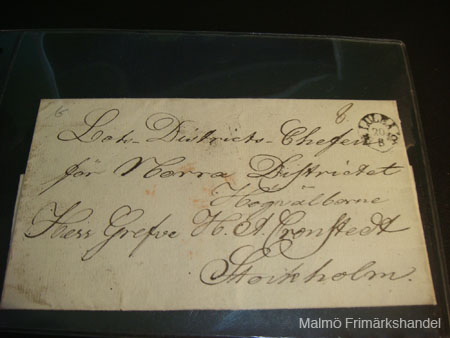 6
8
LULEÅ
20
8
Lots-Districts-Chefen
för Norra Districtet
Högvälborne
Herr Grefve H. A. Cronstedt
Stockholm.
Malmö Frimärkshandel